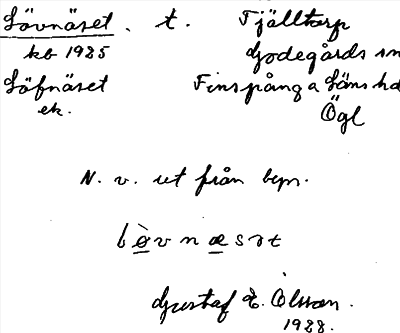 Lövnäset. t. Fjälltorp
kb 1925 Godegårds sn
Löfnäset Finspånga Läns hd
ek. Ögl
N. v. ut från bgn.
lòvnæsət
Gustaf E. Olsson.
1928.